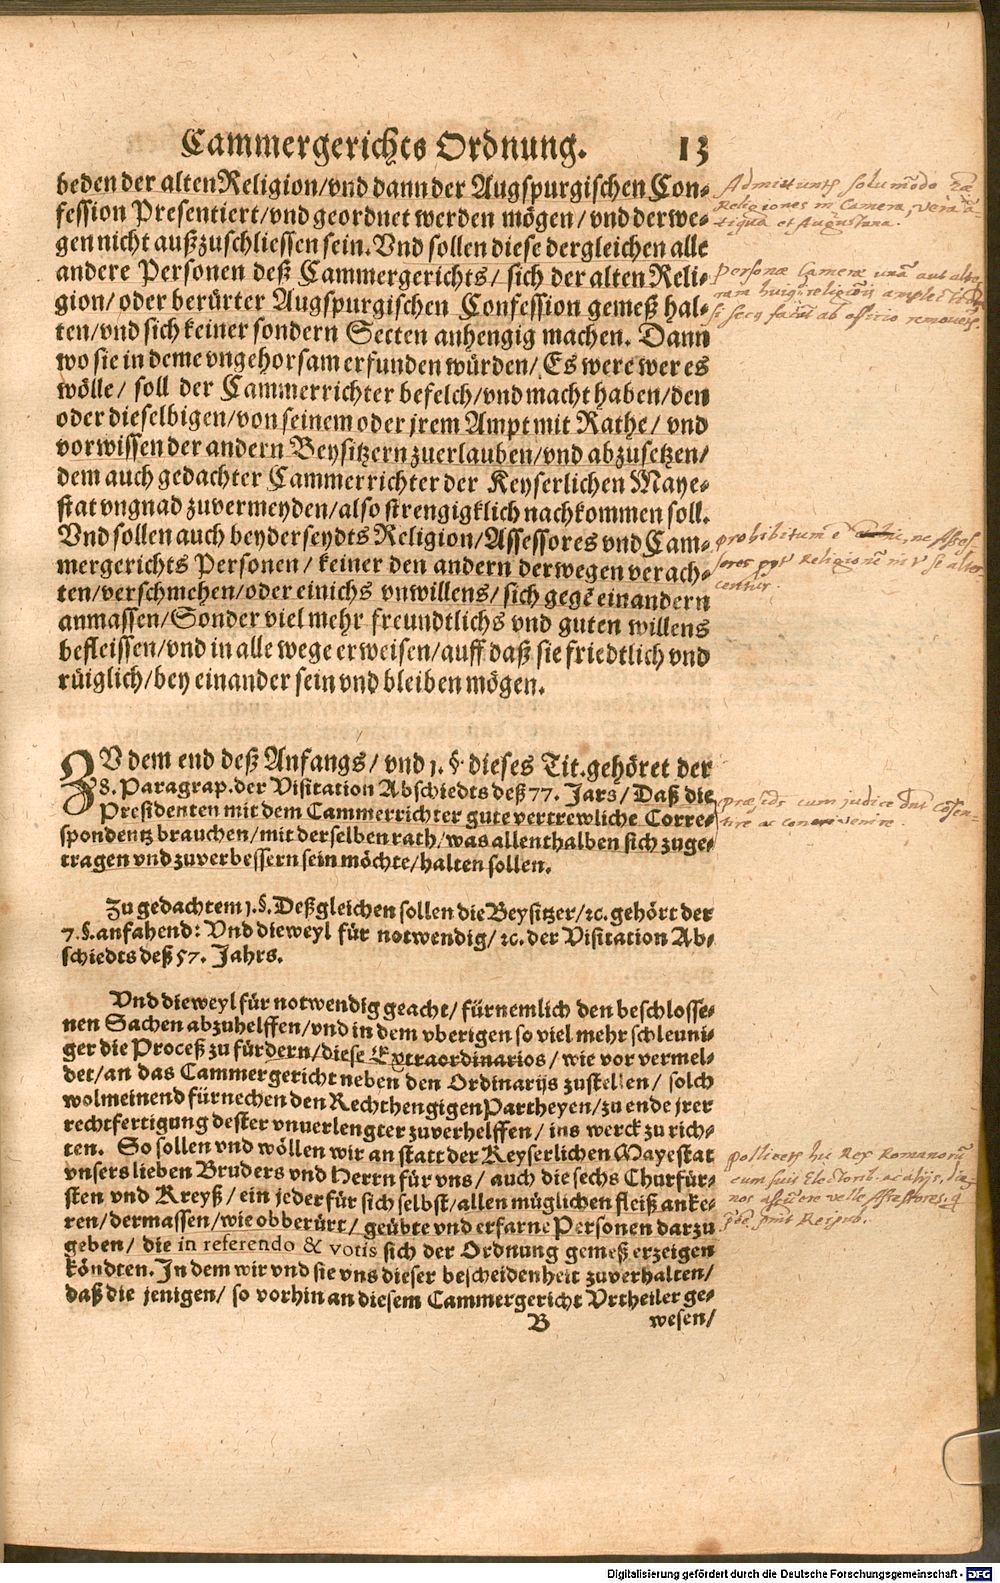 Cammergerichts Ordnung. 13
beden der alten Religion/vnd dann der Augspurgischen Con-
fession Presentiert/vnd geordnet werden mögen/vnd derwe-
gen nicht außzuschliessen sein. Vnd sollen diese dergleichen alle
andere Personen deß Cammergerichts/ sich der alten Reli-
gion/oder berürter Augspurgischen Confession gemeß hal-
ten/vnd sich keiner sondern Secten anhengig machen. Dann
wo sie in deme vngehorsam erfunden würden/ Es were wer es
wölle/ soll der Cammerrichter befelch/vnd macht haben/den
oder dieselbigen/von seinem oder jrem Ampt mit Rathe/ vnd
vorwissen der andern Beysitzern zuerlauben/vnd abzusetzen/
dem auch gedachter Cammerrichter der Keyserlichen Maye-
stat vngnad zuvermeyden/also strengigklich nachkommen soll.
Vnd sollen auch beyderseydts Religion/Assessores vnd Cam-
mergerichts Personen/ keiner den andern derwegen verach-
ten/verschmehen/oder einichs vnwillens/ sich gegē einandern
anmassen/Sonder viel mehr freundtlichs vnd guten willens
befleissen/vnd in alle wege erweisen/auff daß sie friedtlich vnd
rüiglich/bey einander sein vnd bleiben mögen.
ZV dem end deß Anfangs/ vnd 1. § dieses Tit. gehöret der
8. Paragrap. der Visitation Abschiedts deß 77. Jars/ Daß die
Presidenten mit dem Cammerrichter gute vertrewliche Corre-
spondentz brauchen/mit derselben rath/was allenthalben sich zuge-
tragen vnd zuverbessern sein möchte/halten sollen.
Zu gedachtem 1. §. Deßgleichen sollen die Beysitzer/ꝛc. gehört der
7. §. anfahend: Vnd dieweyl für notwendig/ ꝛc. der Visitation Ab-
schiedts deß 57. Jahrs.
Vnd dieweyl für notwendig geacht/ fürnemlich den beschlosse-
nen Sachen abzuhelffen/vnd in dem vberigen so viel mehr schleuni-
ger die Proceß zu fürdern/diese Extraordinarios/ wie vor vermel-
det/an das Cammergericht neben den Ordinarijs zustellen/ solch
wolmeinend fürnechen den Rechthengigen Partheyen/zu ende jrer
rechtfertigung dester vnuerlengter zuverhelffen/ ins werck zu rich-
ten. So sollen vnd wöllen wir an statt der Keyserlichen Mayestat
vnsers lieben Bruders vnd Herrn für vns/ auch die sechs Churfür-
sten vnd Kreyß/ ein jeder für sich selbst/allen müglichen fleiß anke-
ren/dermassen/wie obberürt/ geübte vnd erfarne Personen darzu
geben/ die in referendo & votis sich der Ordnung gemeß erzeigen
köndten. In dem wir vnd sie vns dieser bescheidenheit zuverhalten/
daß die jenigen/ so vorhin an diesem Cammergericht Vrtheiler ge-
B wesen/
Religiones in Camera,
et Augustana.
Personæ Cameræ unā aut alte-
ram
ab officio
prohibitum ē
præsids cum judice
ac
polliceri hic Rex Romanorū
cum suis
Digitalisierung gefördert durch die Deutsche Forschungsgemeinschaft - DFG